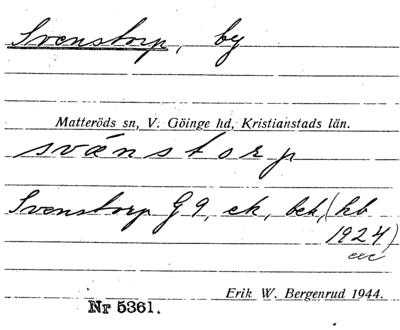 Svenstorp, by
Matteröds sn, V. Göinge hd, Kristianstads län.
svänstorp
Svenstorp G 9, ek, bek, (hb
1924)
Erik W. Bergenrud 1944.
Nr 5361.